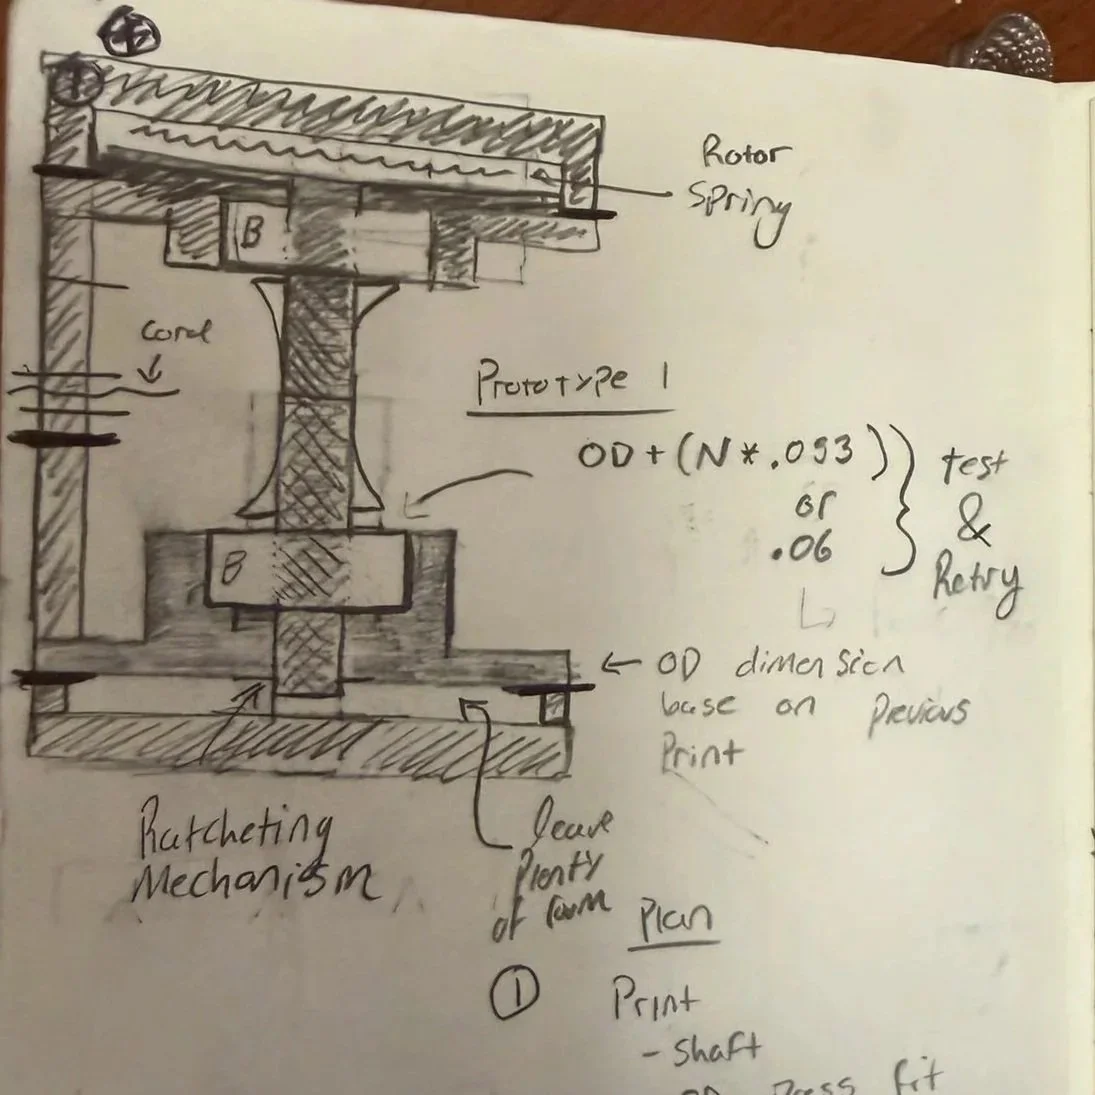 1
Rotor
Spring
B
Cord
Prototype 1
OD + (N * .093)
or
.06
test
&
Retry
B
← OD dimension
base on Previous
Print
Ratcheting
Mechanism
leave
Plenty
of room
Plan
① Print
- shaft
OD Press fit